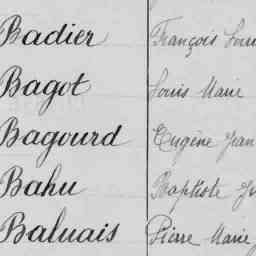 Badier François Louis
Bagot Louis Marie
Bagourd Eugène Jean
Bahu Baptiste
Baluais Pierre Marie